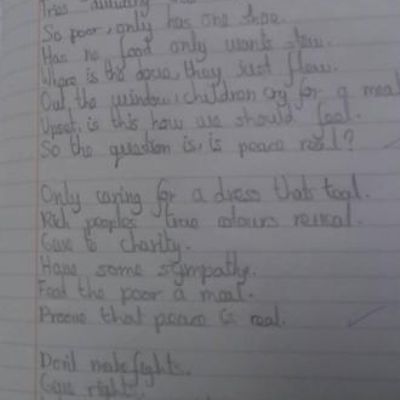 Tries
So poor, only has one shoe.
Has no food only wants stew.
Where is the dove, they just flew.
Out the window, children cry for a meal
Upset, is this how we should feel.
So the question is, is peace real?
Only caring for a dress thats teal.
Rich peoples true colours reveal.
Give to charity.
Have some sympathy.
Feed the poor a meal.
Proove that peace is real.
Don't make fights.
Give rights.